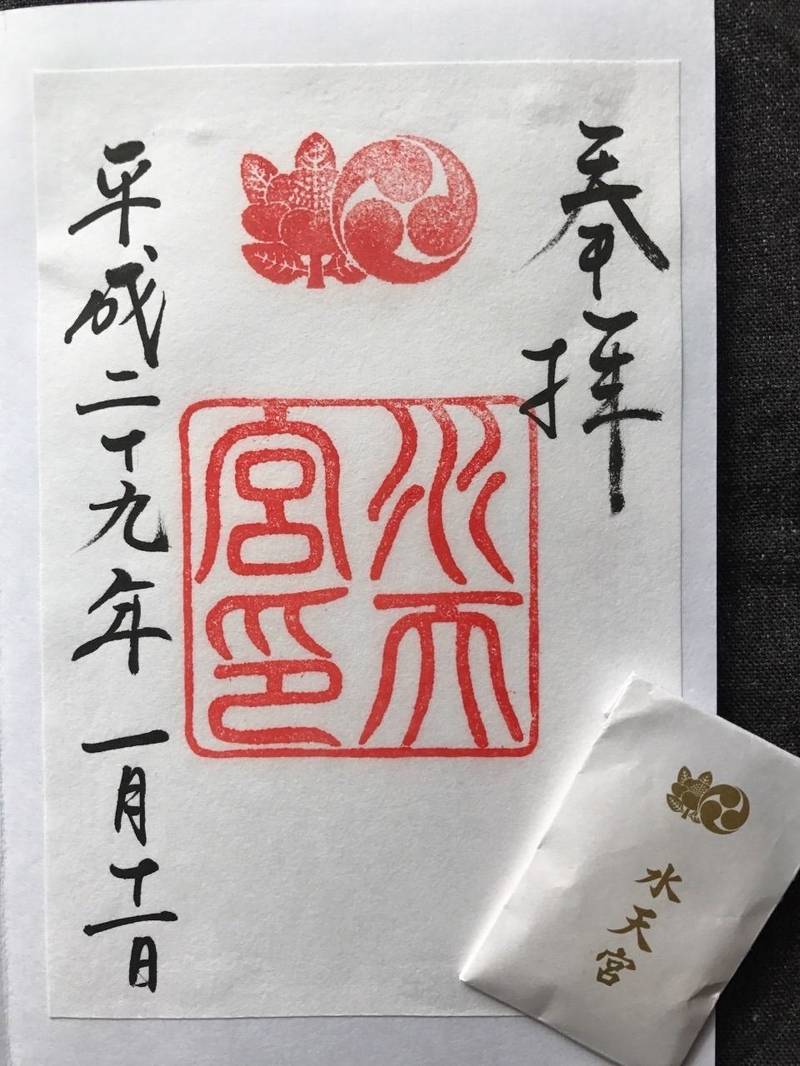 奉拝
水天宮印
平成二十九年一月十一日
水天宮